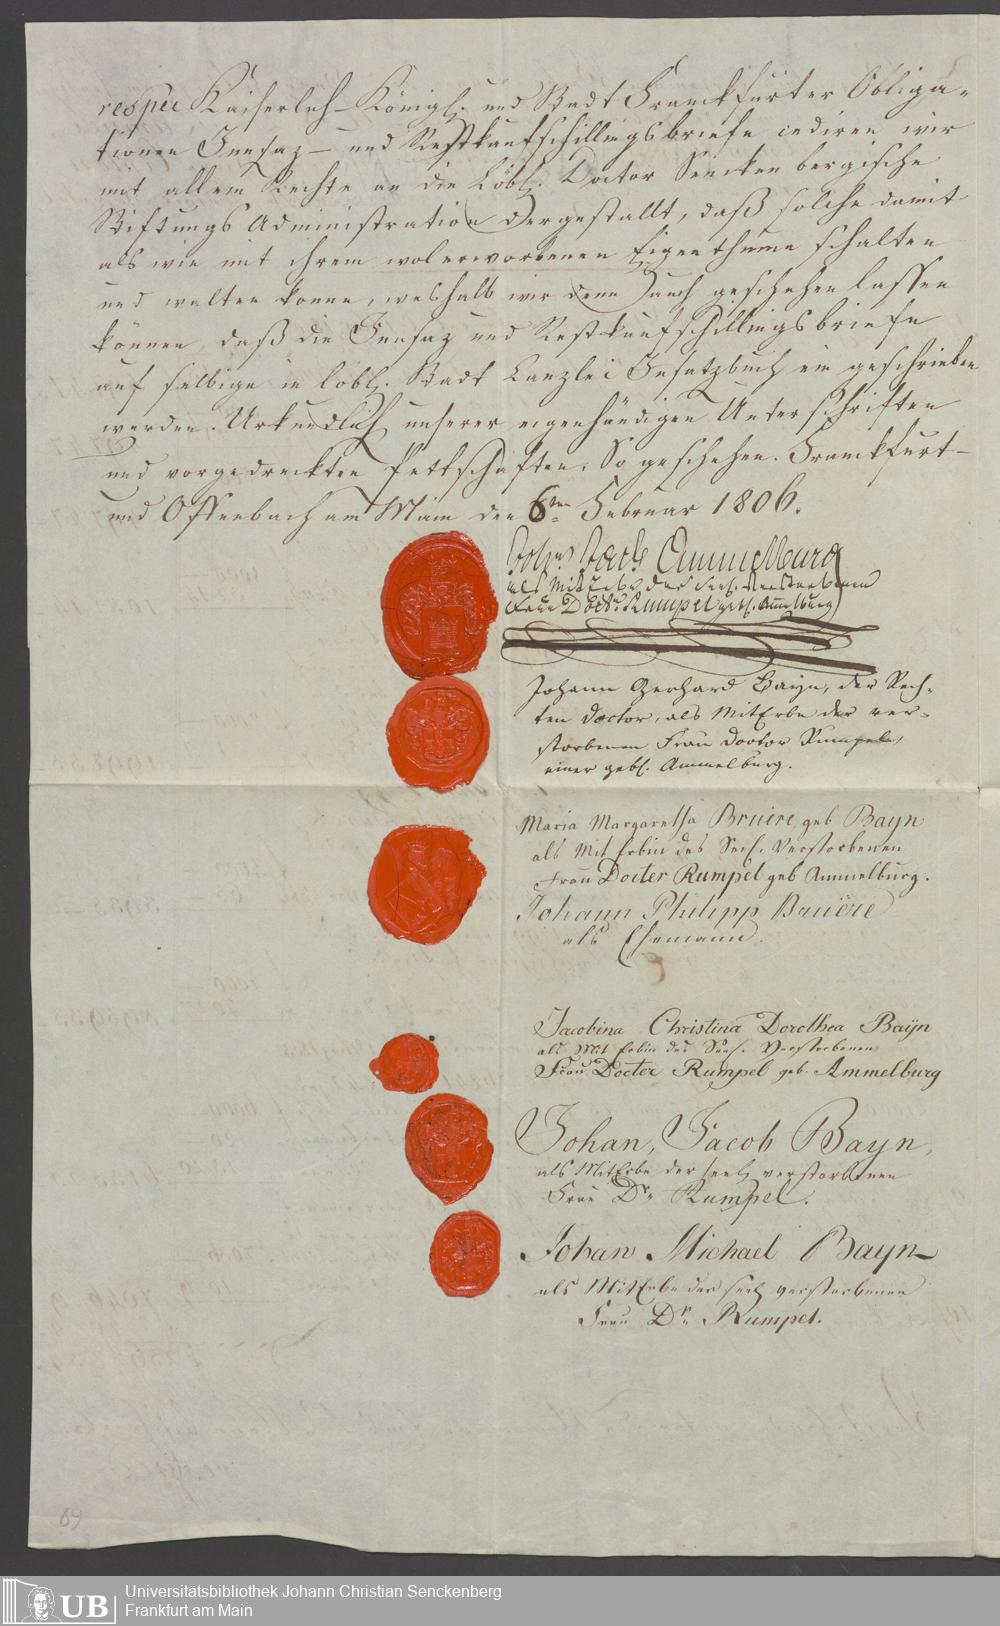 respec Kaiserlich-Königl. und Stadt Franckfurter Obliga-
tionen Innsaz- und Restkaufschillingsbriefe cediren wir
mit allem Rechte an die Löbl. Doctor Senckenbergische
Stiftungs Administration dergestallt, daß solche damit
als wie mit ihrem wolerworbenen Eigenthume schalten
und walten konne, weshalb wir denn auch geschehen lassen
können, daß die Innsaz und Restkaufschillingsbriefe
auf selbige in löbl. Stadt Canzlei Insatzbuch ein geschrieben
werden. Urkundlich unserer eigenhändigen Unterschriften
und vorgedruckten Pettschaften. So geschehen. Franckfurt-
und Offenbach am Main den 6ten Februar 1806.
Johs Jacb Ammelburg
als Miterbe der seel. verstorbenen
Frau Doctr Rumpel geb. Ammelburg
Johann Gerhard Bayn, der Rech-
ten Doctor, als MitErbe der ver-
storbenen Frau Doctor Rumpel,
einer gebl. Ammelburg.
Maria Margaretha Bruère geb Bayn
als Mit Erbin des Seel. Verstorbenen
Frau Docter Rumpel geb Ammelburg.
Johann Philipp Bruère
als Ehemann.
Jacobina Christina Dorothea Baÿn
als Mit Erbin des Seel. Verstorbenen
Frau Docter Rumpel geb. Ammelburg
Johan, Jacob Bayn,
als MitErbe der seel verstorbenen
Frau Dr. Rumpel.
Johan Michael Bayn
als MitErbe der seel verstorbenen
Frau Dr. Rumpel.
69
UB
Universitätsbibliothek Johann Christian Senckenberg
Frankfurt am Main